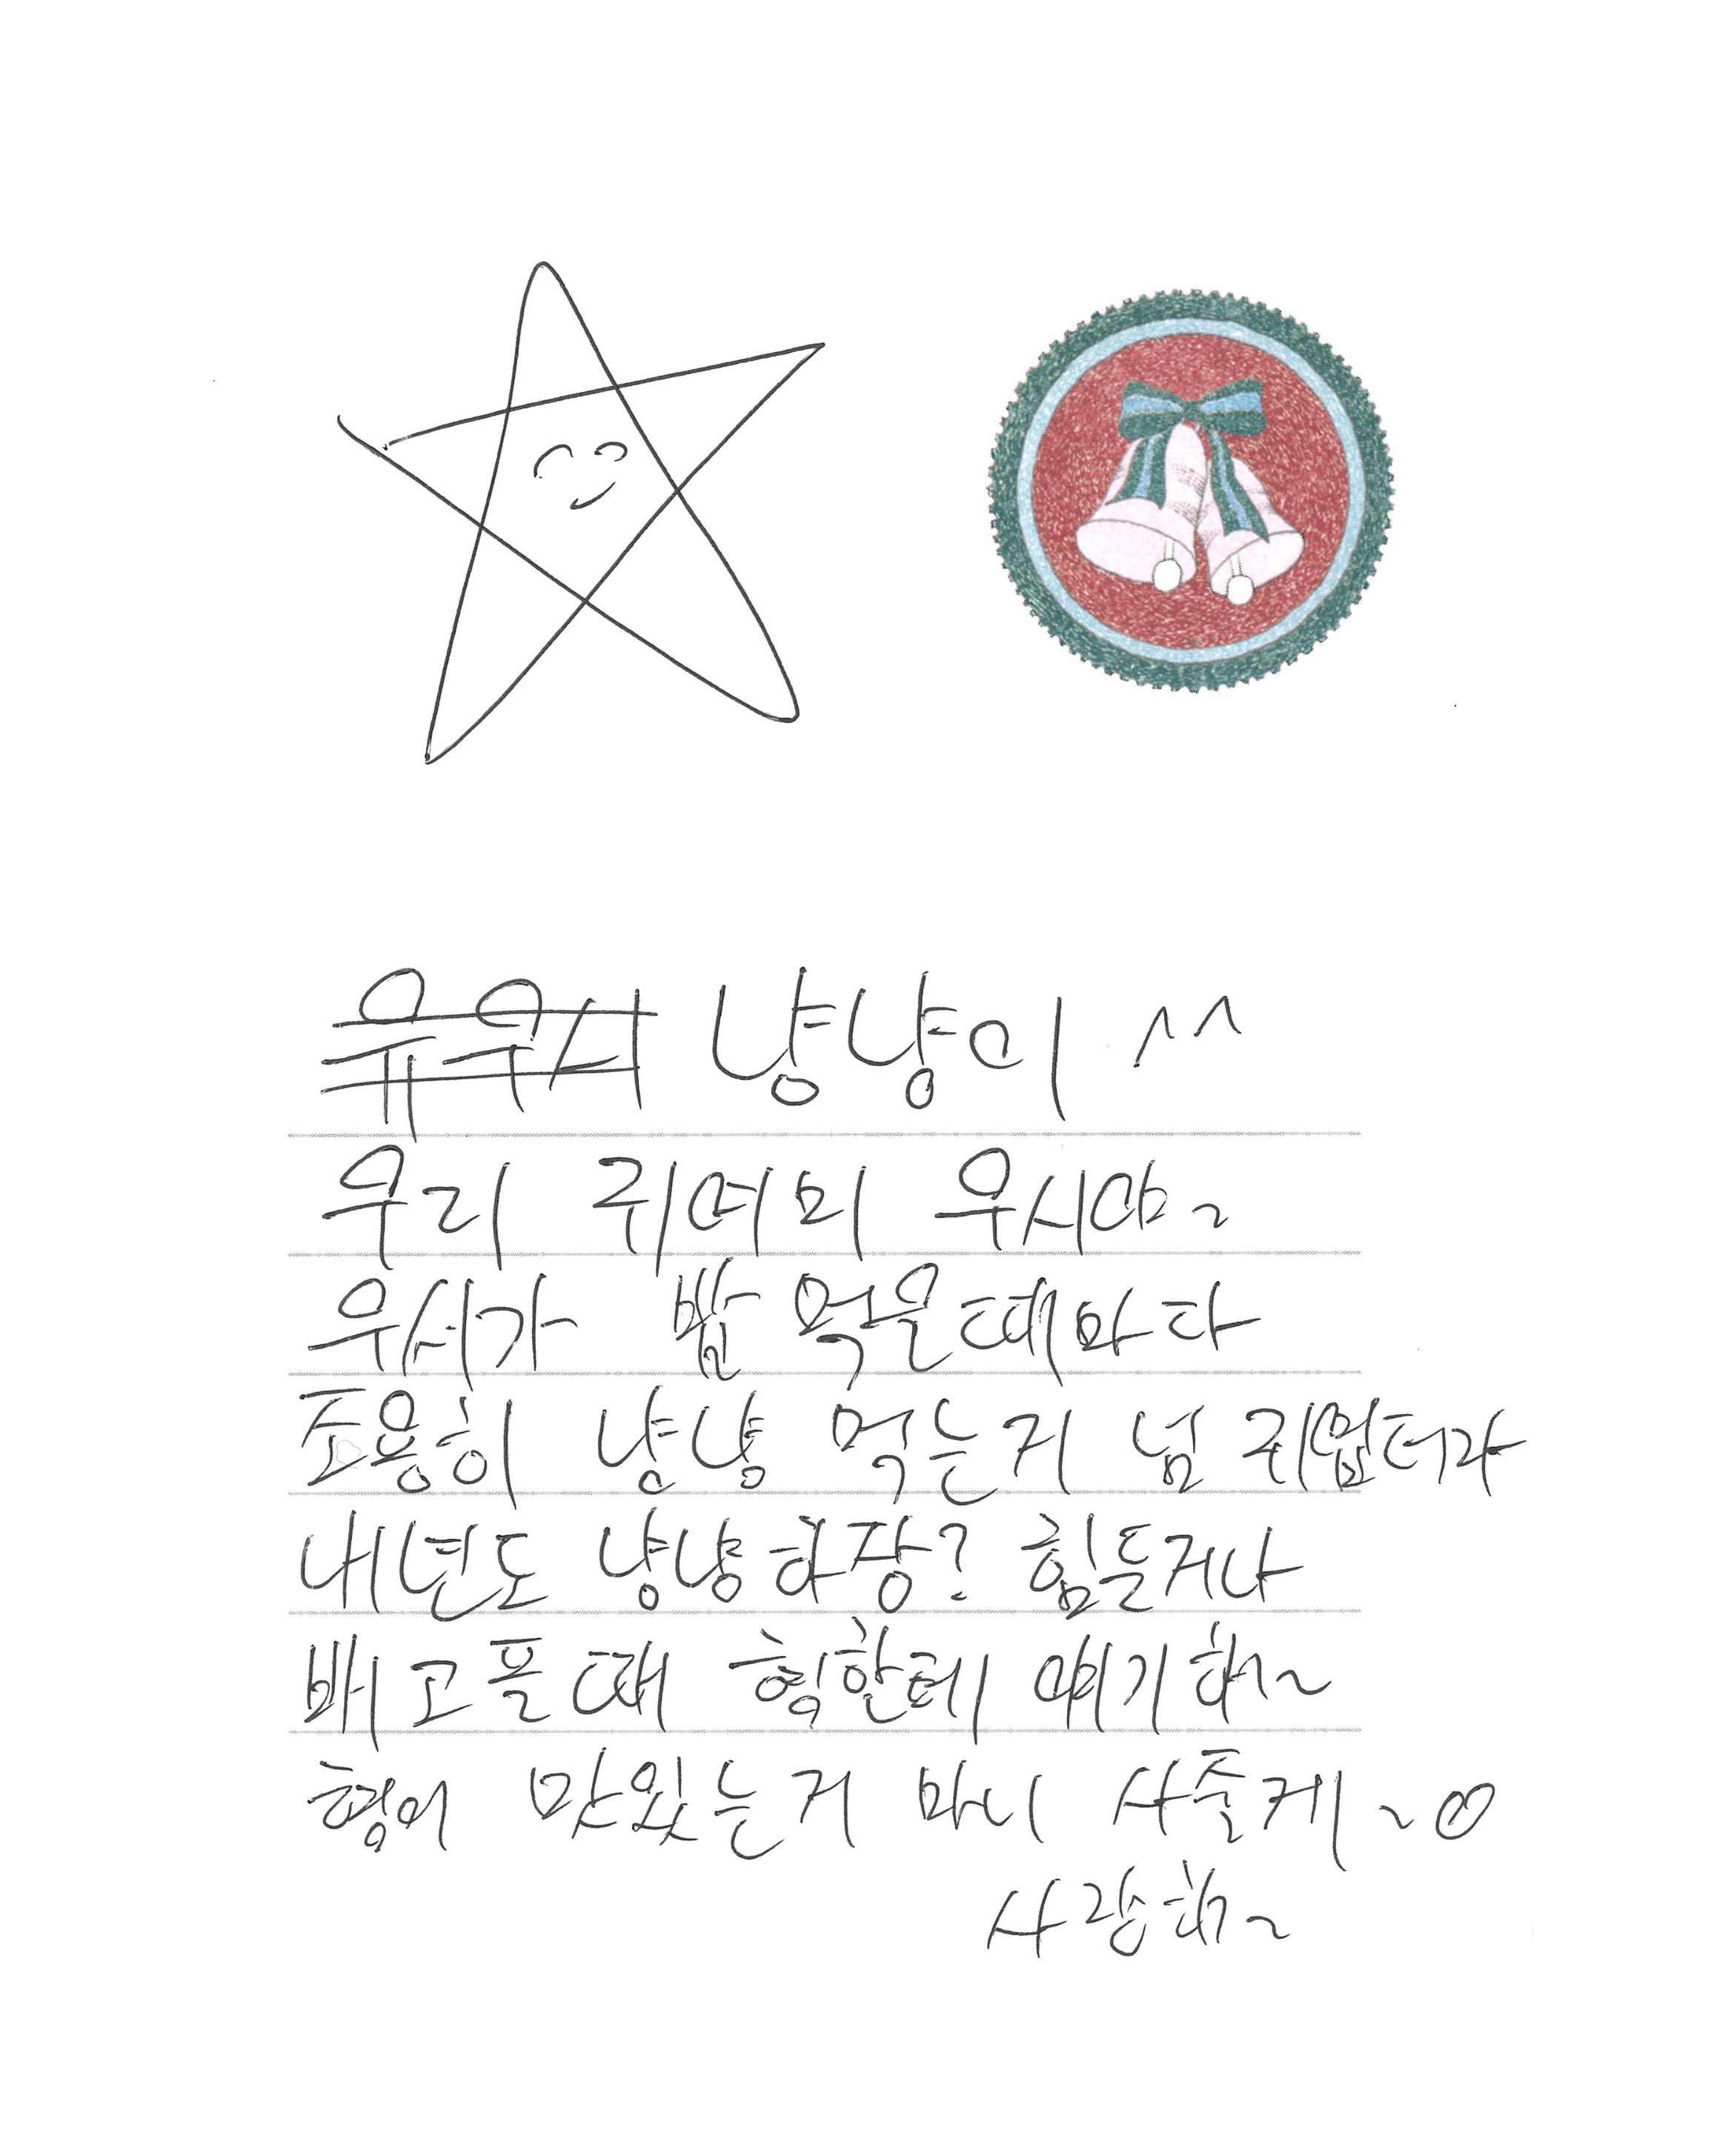 유우시 냥냥이 ^^
우리 귀여미 우시야~
우시가 밥 먹을때마다
조용히 냥냥 먹는거 넘 귀엽더라
내년도 냥냥하장? 힘들거나
배고플때 형한테 얘기해~
형이 맛있는거 마니 사줄게~
사랑해~